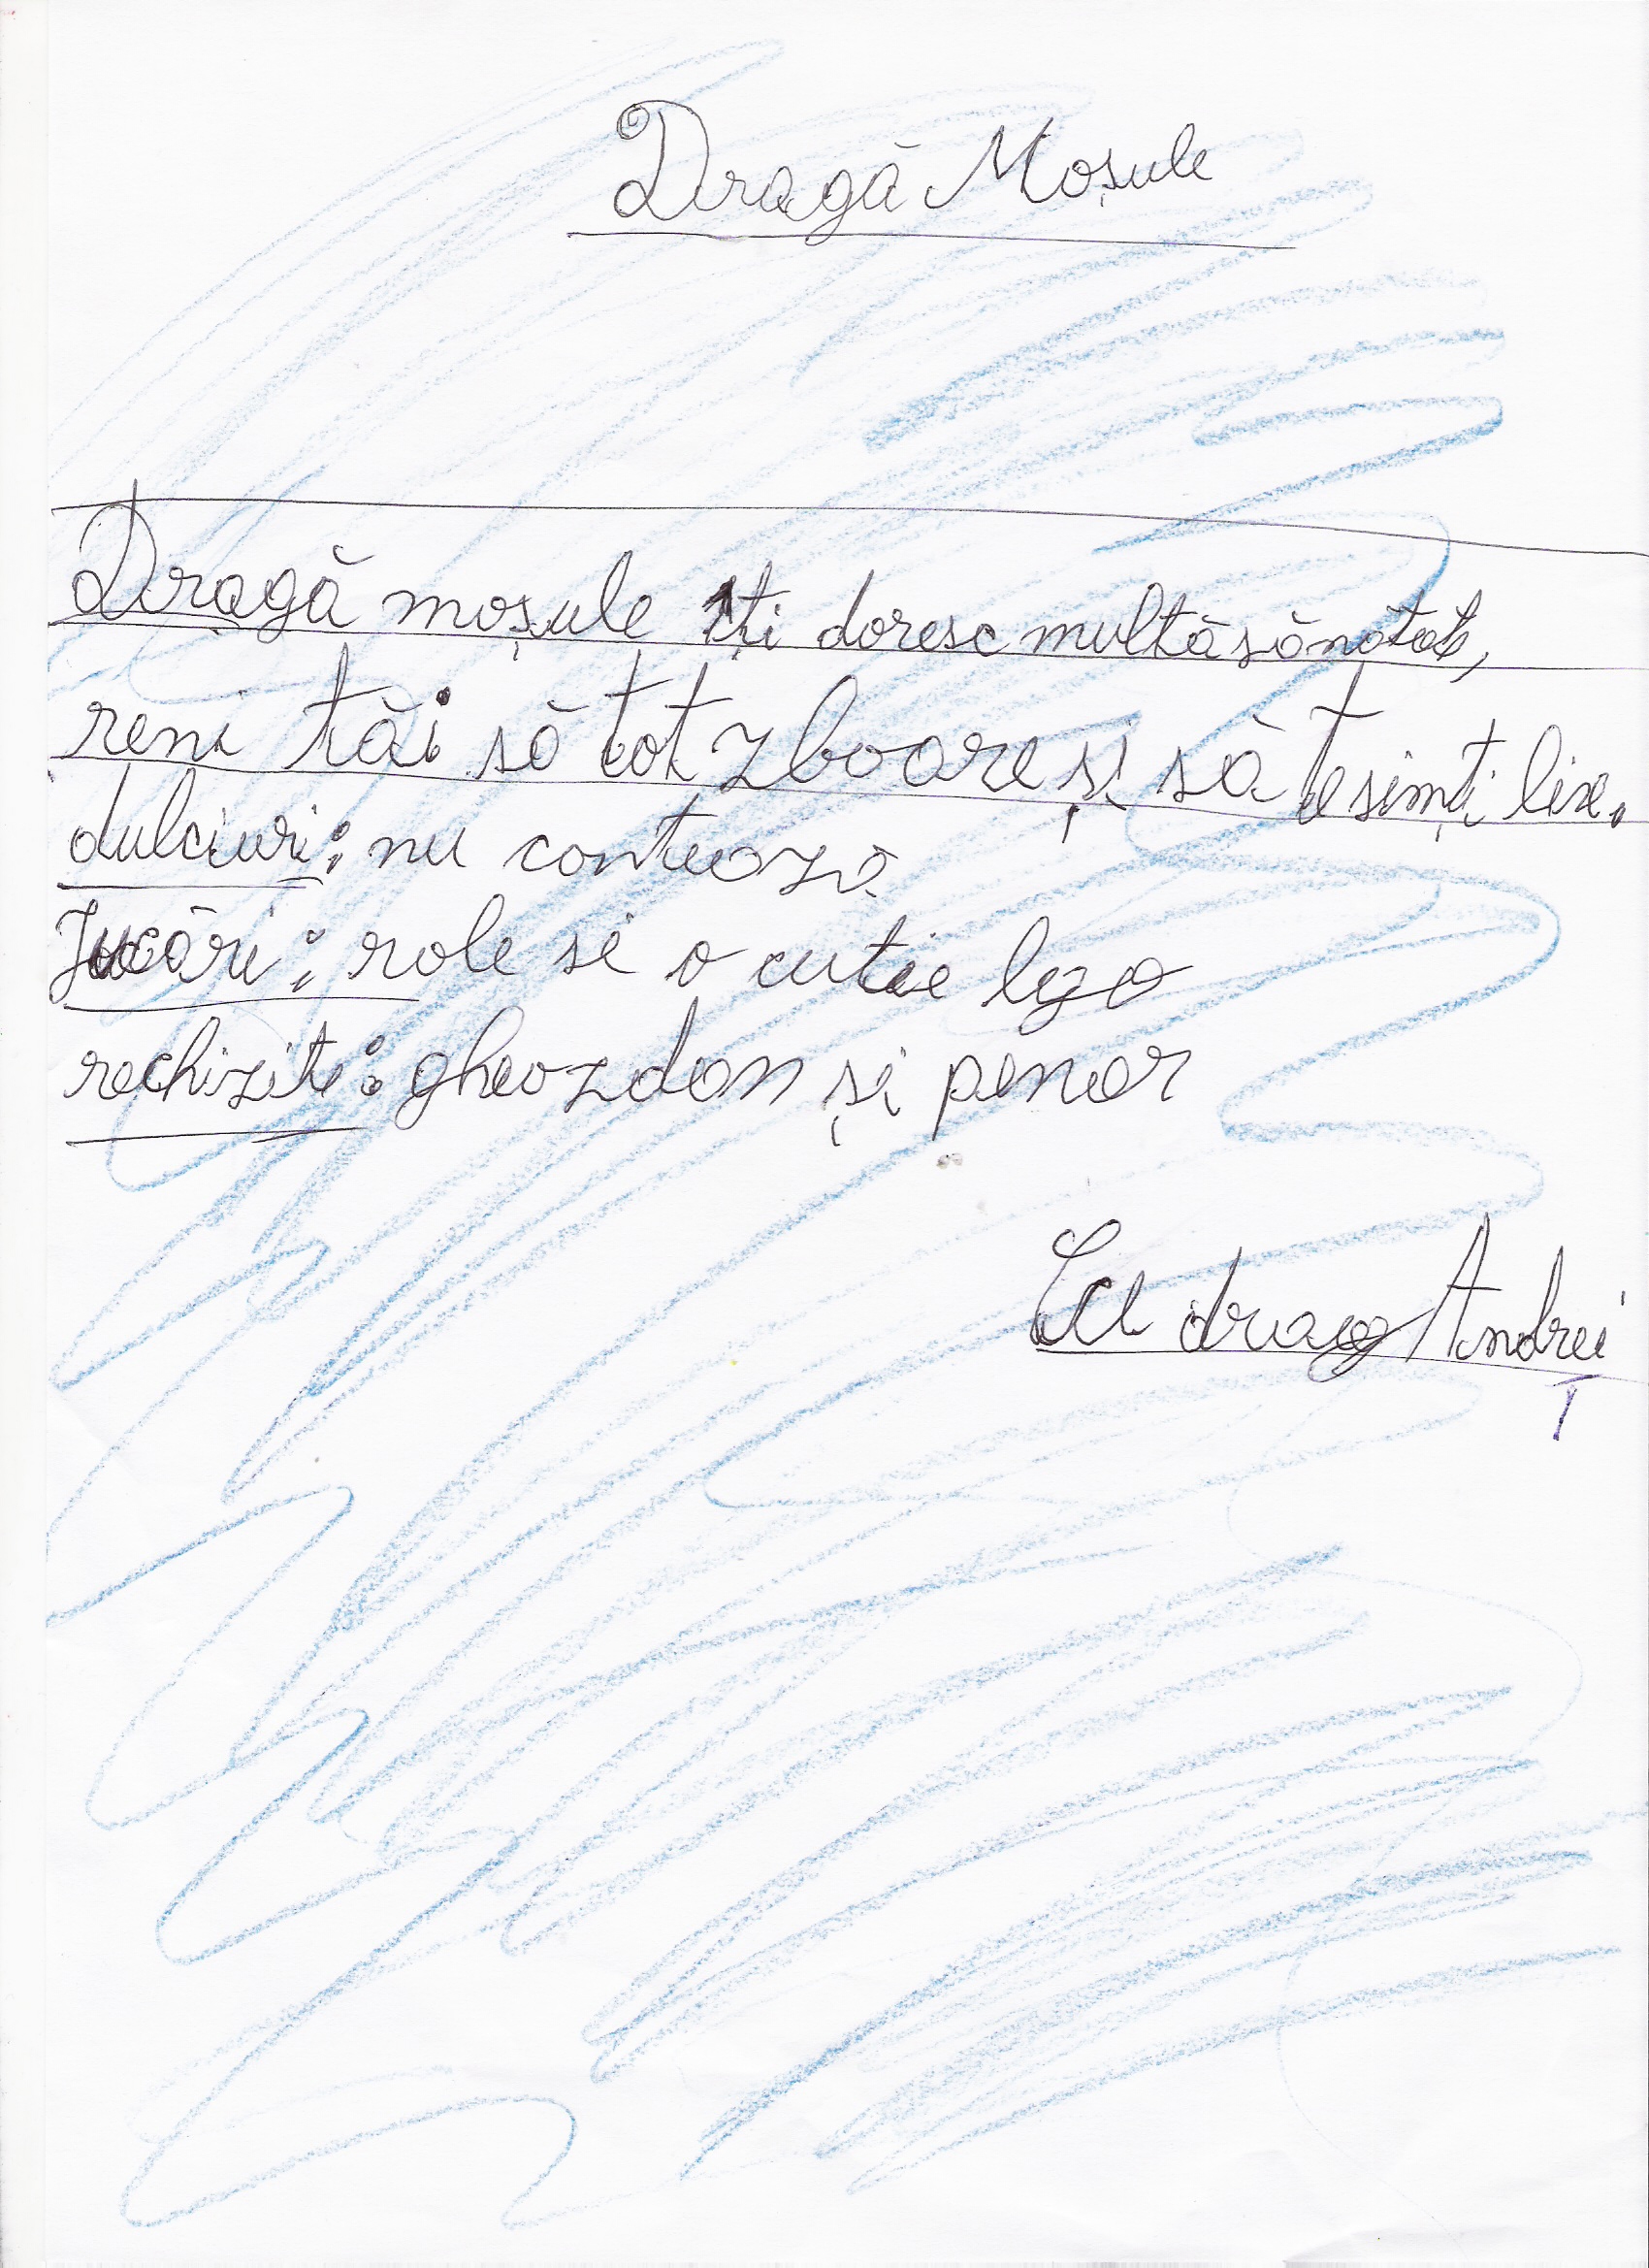 Dragă Moșule
Dragă moșule îți doresc multă sănătate,
reni tăi să tot zboare și să te simți bine.
dulciuri: nu contează
Jucări: role si o cutie lego
rechizite: gheozdan și penar
Cu drag Andrei
T